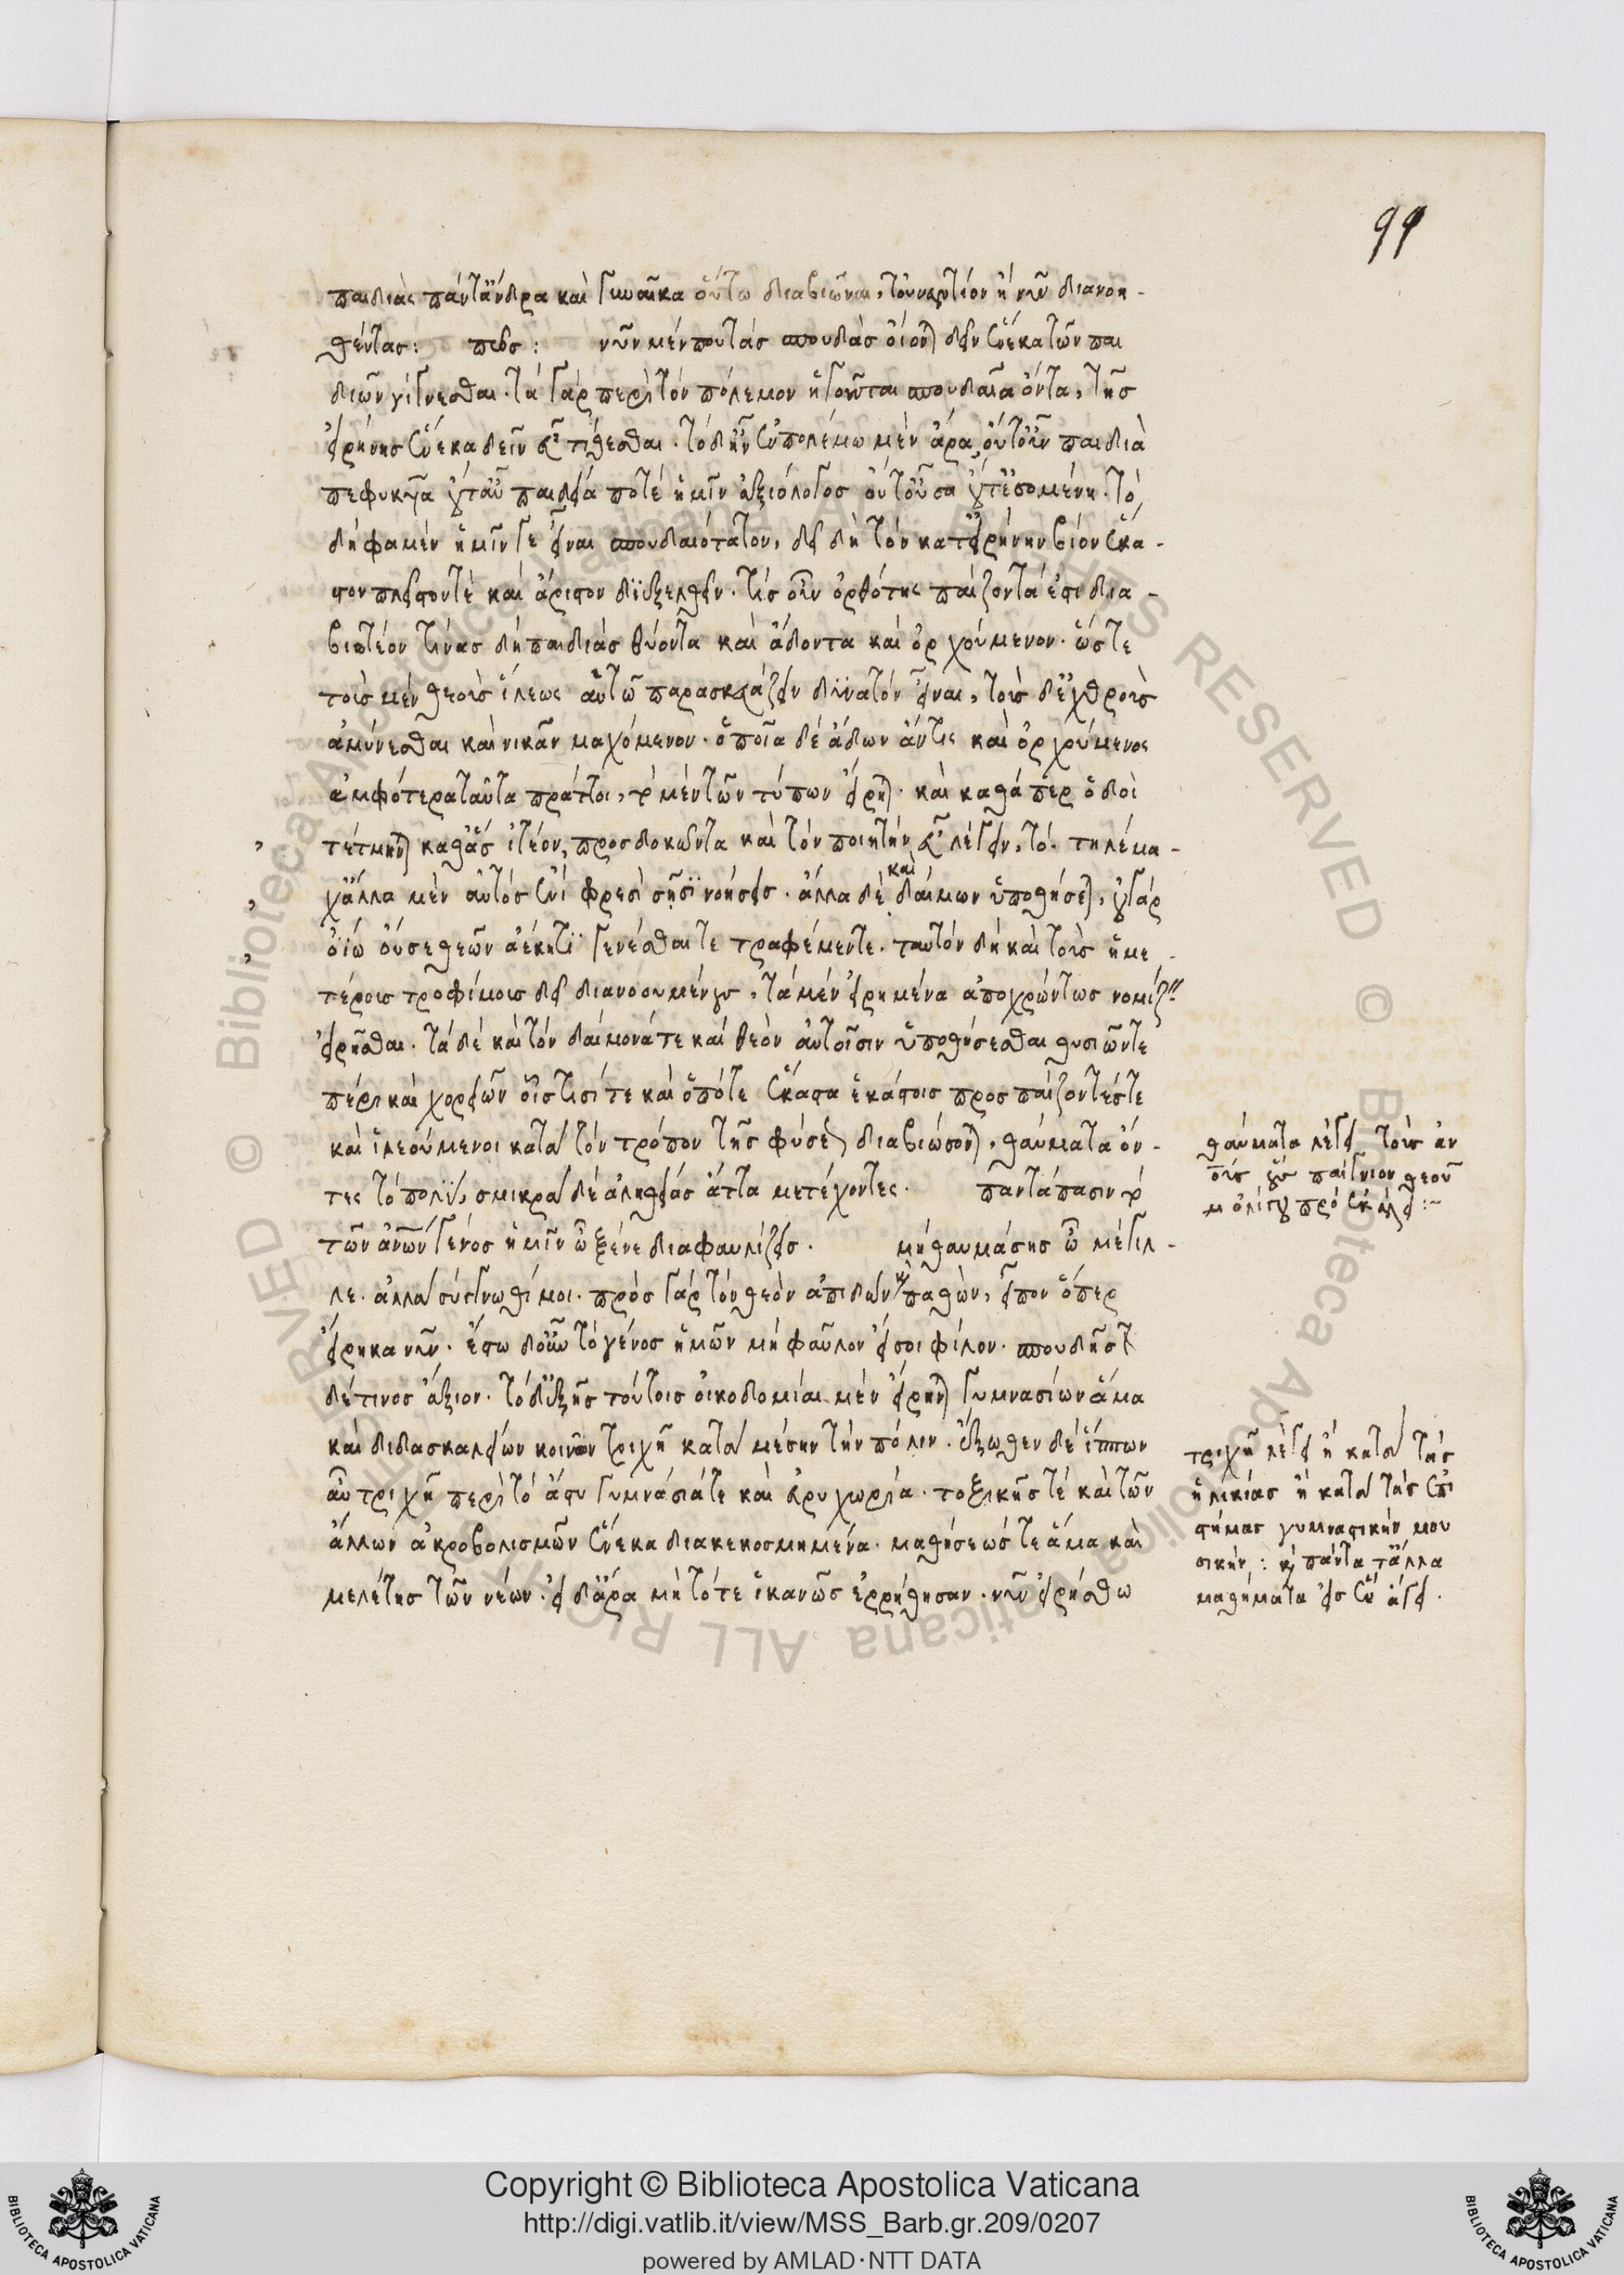 99
παιδιὰς πάντ' ἄνδρα καὶ γυναῖκα οὕτω διαβιῶναι, τοὐναντίον ἢ νῦν διανοη-
θέντας: πῶς: νῦν μέν που τὰς σπουδὰς οἴονται δεῖν ἕνεκα τῶν παι
διῶν γίγνεσθαι. τὰ γὰρ περὶ τὸν πόλεμον ἡγοῦνται σπουδαῖα ὄντα, τῆς
εἰρήνης ἕνεκα δεῖν εὖ τίθεσθαι. τὸ δ' ἦν ἐν πολέμω μὲν ἄρα, οὔτ' οὖν παιδιὰ
πεφυκυῖα οὔτ' αὖ παιδεία ποτὲ ἡμῖν ἀξιόλογος οὔτ' οὖσα οὔτ' ἐσομένη. τὸ
δή φαμεν ἡμῖν γε εἶναι σπουδαιότατον, δεῖ δὴ τὸν κατ' εἰρήνην βίον ἕκα-
στον πλεῖστόν τε καὶ ἄριστον διεξελθεῖν. τίς οὖν ὀρθότης παίζοντά ἐστι δια-
βιωτέον τινὰς δὴ παιδιὰς θύοντα καὶ ἄδοντα καὶ ὀρχούμενον. ὥστε
τοὺς μὲν θεοὺς ἵλεως αὑτῶ παρασκευάζειν δυνατὸν εἶναι, τοὺς δ' ἐχθροὺς
ἀμύνεσθαι καὶ νικᾶν μαχόμενον. ὁποῖα δὲ ἄδων ἄν τις καὶ ὀρχούμενος
ἀμφότερα ταῦτα πράττοι, τὸ μὲν τῶν τύπων εἴρηται. καὶ καθάπερ ὁδοὶ
τέτμηνται καθ' ἃς ἰτέον, προσδοκῶντα καὶ τὸν ποιητὴν εὖ λέγειν, τό. τηλέμα-
χ' ἄλλα μὲν αὐτὸς ἐνὶ φρεσὶ σῆσι νοήσεις. ἄλλα δὲ καὶ δαίμων ὑποθήσεται, οὐ γὰρ
ὀΐω οὔ σε θεῶν ἀέκητι γενέσθαι τε τραφέμεν τε. ταυτὸν δὴ καὶ τοὺς ἡμε
τέροις τροφίμοις δεῖ διανοουμένους, τὰ μὲν εἰρημένα ἀποχρώντως νομίζειν
εἰρῆσθαι. τὰ δὲ καὶ τὸν δαίμονά τε καὶ θεὸν αὐτοῖσιν ὑποθήσεσθαι θυσιῶν τε
πέρι καὶ χορειῶν οἷς τισί τε καὶ ὁπότε ἕκαστα ἑκάστοις προσπαίζοντές τε
καὶ ἱλεούμενοι κατὰ τὸν τρόπον τῆς φύσεως διαβιώσονται, θαύματα ὄν-
τες τὸ πολὺ, σμικρὰ δὲ ἀληθείας ἄττα μετέχοντες. παντάπασιν τὸ
τῶν ἀνθρώπων γένος ἡμῖν ὦ ξένε διαφαυλίζεις. μὴ θαυμάσης ὦ μέγιλ-
λε. ἀλλὰ σύγγνωθί μοι. πρὸς γὰρ τὸν θεὸν ἀπιδὼν καὶ παθὼν, εἶπον ὅπερ
εἴρηκα νῦν. ἔστω δ' οὖν τὸ γένος ἡμῶν μὴ φαῦλον εἴ σοι φίλον. σπουδῆς
δέ τινος ἄξιον. τὸ δ' ἑξῆς τούτοις οἰκοδομίαι μὲν εἴρηνται γυμνασίων ἅμα
καὶ διδασκαλείων κοινῶν τριχῆ κατὰ μέσην τὴν πόλιν. ἔξωθεν δὲ ἵππων
αὖ τριχῆ περὶ τὸ ἄστυ γυμνάσιά τε καὶ εὐρυχωρία. τοξικῆς τὲ καὶ τῶν
ἄλλων ἀκροβολισμῶν ἕνεκα διακεκοσμημένα. μαθήσεώς τε ἅμα καὶ
μελέτης τῶν νέων. εἰ δ' ἄρα μὴ τότε ἱκανῶς ἐρρήθησαν. νῦν εἰρήσθω
θαύματα λέγει τοὺς ἀν
οὓς παίγνιον θεοῦ
ὀλίγου πρὸ ἐκάλει:~
τριχῆ λέγει ἢ κατὰ τὰς
ἡλικίας ἢ κατὰ τὰς ἐπι
στήμας γυμναστικὴν μου
σικήν: καὶ πάντα τἄλλα
μαθήματα εἰς ἓν ἄγει.
Copyright © Biblioteca Apostolica Vaticana
http://digi.vatlib.it/view/MSS_Barb.gr.209/0207
powered by AMLAD·NTT DATA